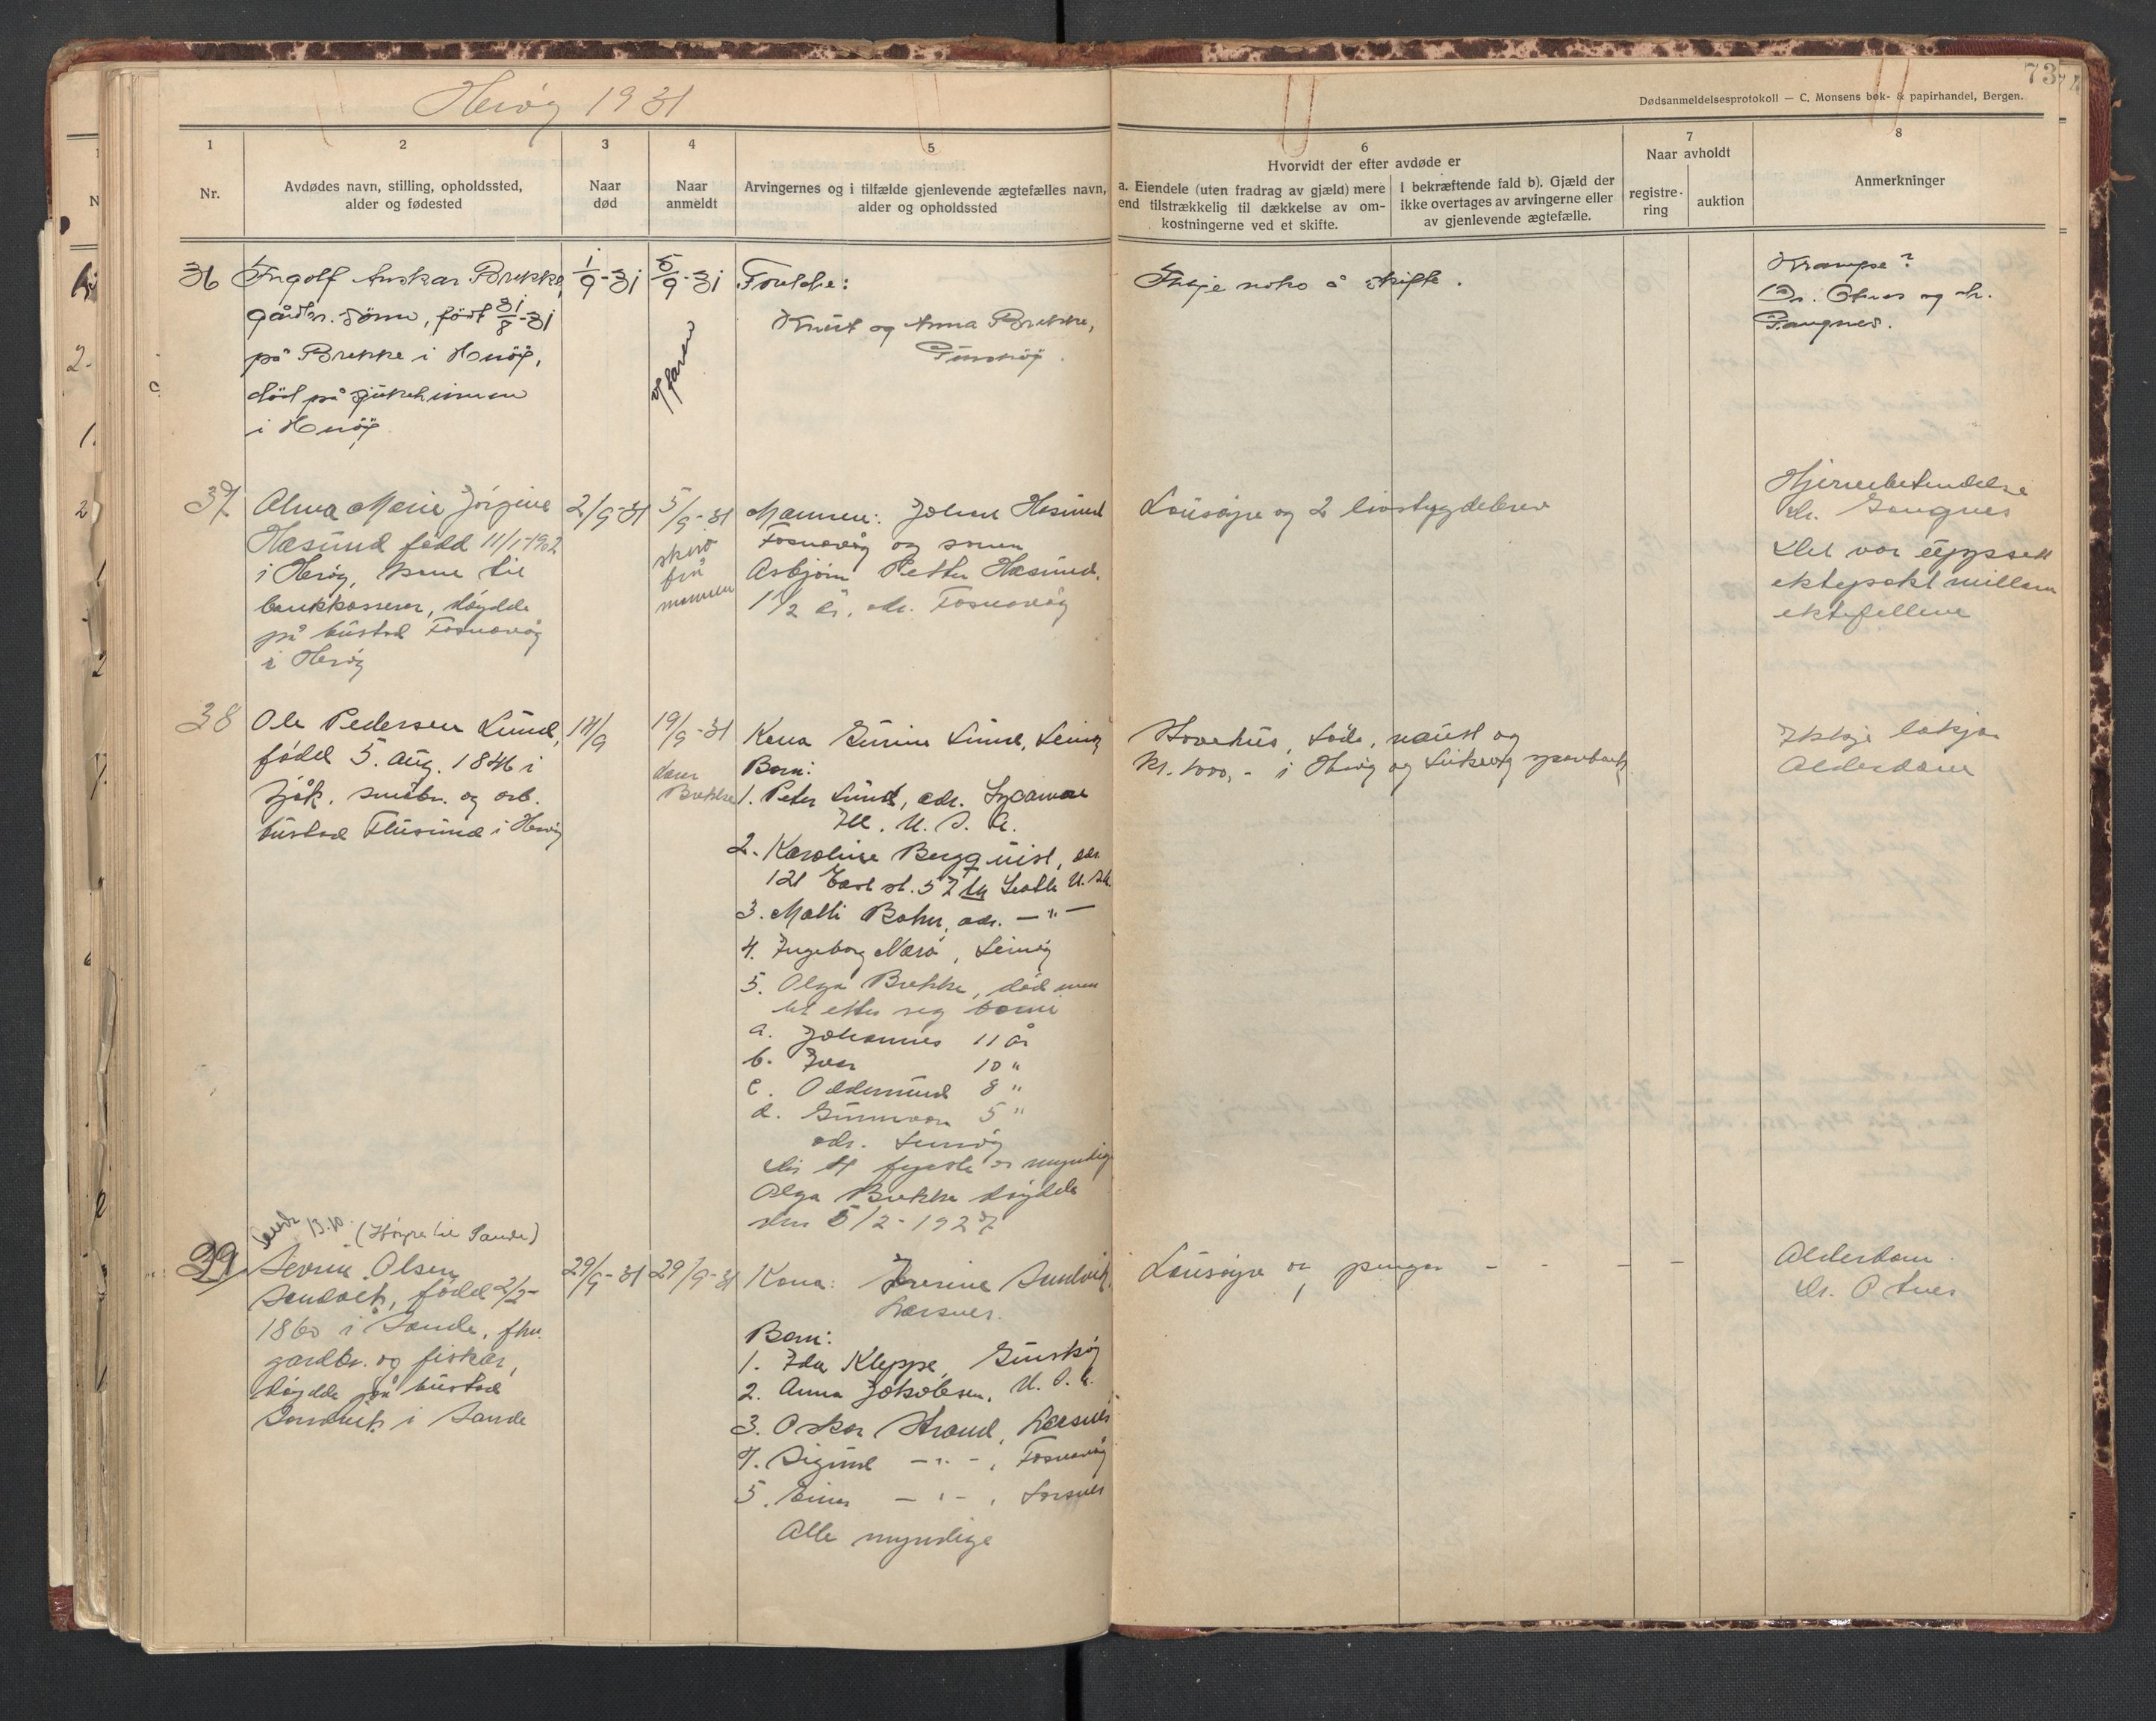 Herøy 1931
73
Dødsanmeldelsesprotokoll — C. Monsens bok- & papirhandel, Bergen.
1
Nr.
2
Avdødes navn, stilling, opholdssted,
alder og fødested
3
Naar
død
4
Naar
anmeldt
5
Arvingernes og i tilfælde gjenlevende ægtefælles navn,
alder og opholdssted
6
Hvorvidt der efter avdøde er
a. Eiendele (uten fradrag av gjæld) mere
end tilstrækkelig til dækkelse av om-
kostningerne ved et skifte.
I bekræftende fald b). Gjæld der
ikke overtages av arvingerne eller
av gjenlevende ægtefælle.
7
Naar avholdt
registre-
ring
auktion
8
Anmerkninger
36
Ingolf Anskar Brekke,
gårdbr. sönn, födt 31/8-31
på Brekke i Heröy,
död på sjukeheimen
i Heröy.
1/9-31
5/9-31
av faren
Foreldre:
Knut og Anna Brekke,
Gurskøy.
Ikkje noko å skifte.
Krampe?
Dr. Otnes og dr.
Gangnes.
37
Alma Marie Jörgine
Hasund fødd 11/1-1902
i Herøy, kone til
bankkasserer, döydde
på bustad Fosnavåg
i Herøy
2/9-31
5/9-31
skriv
frå
mannen
Mannen: Johan Hasund
Fosnavåg og sonen
Asbjörn Petter Hasund,
1 1/2 år, adr. Fosnavåg
Lausöyre og 2 livstrygdebrev
Hjernebetendelse
dr. Gangnes
Det var uppsett
ektepakt millom
ektefellene
38
Ole Pedersen Lund,
fødd 5. aug. 1846 i
småbr. og arb.
bustad Flusund i Herøy
17/9
19/9-31
Brekke
Kona Gurine Lund, Leinøy
Born:
1. Peter Lund, adr. Sycamore
Ill. U. S. A.
2. Karoline Bergquist, adr.
121 East st. 57 Seattle U.S.A.
3. Malli adr. — " —
4. Ingeborg Nærö, Leinøy
5. Olga Brekke, död men
let etter seg borni
a. Johannes 11 år
b. Ivar 10 "
c. Oddmund 8 "
d. Gunnvor 5 "
adr. Leinøy
Dei 4 fyrste er myndig
Olga Brekke döydde
den 5/2-1927
Stovehus, löda, naust og
kr. 1000,- i Herøy og Leikong sparebank
Ikkje lækjar
Alderdom
Sendt 13.10. (Høyre til Sande)
39
Severin Olsen
Sandvik, fødd 2/2-
1860 i Sande, fhv.
gardbr. og fiskar,
døydde på bustad
Sandvik i Sande
29/9-31
29/9-31
Kona: Severine Sandvik,
Larsnes.
Born:
1. Ida Kleppe, Gurskøy
2. Anna Jakobsen, U. S. A.
3. Oskar Strand, Larsnes
4. Sigurd — " —, Fosnavåg
5. Einar — " —, Larsnes
Alle myndige
Lausøyre og pengar - - - -
Alderdom.
Dr. Otnes